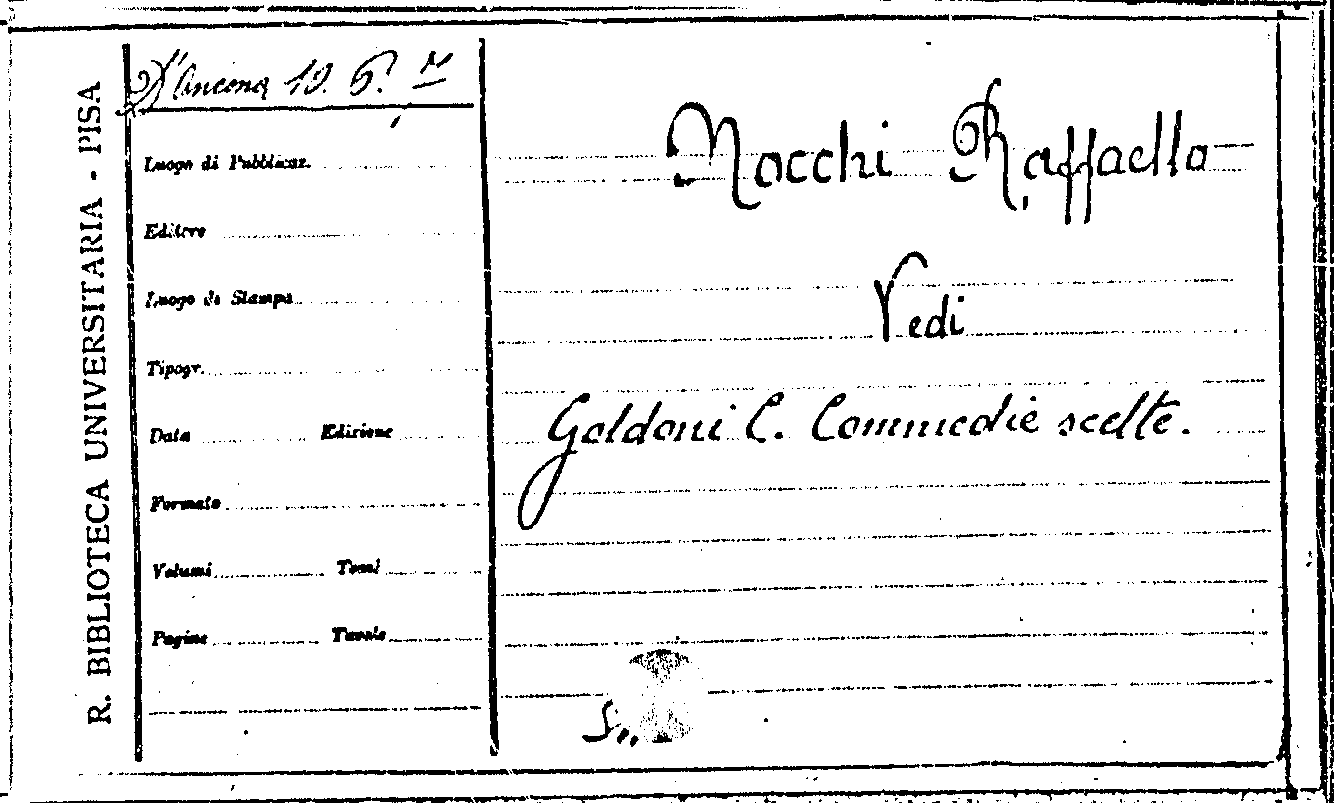 R. BIBLIOTECA UNIVERSITARIA - PISA
D'Ancona 10. 6.
Luogo di Pubblicaz.
Editore
Luogo di Stampa
Tipogr.
Data Edizione
Formato
Volumi Tomi
Pagine Tavole
Nocchi Raffaello
Vedi
Goldoni C. Commedie scelte.